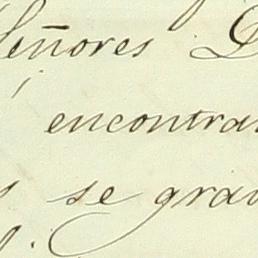 Señores D
encontrar
s se grav